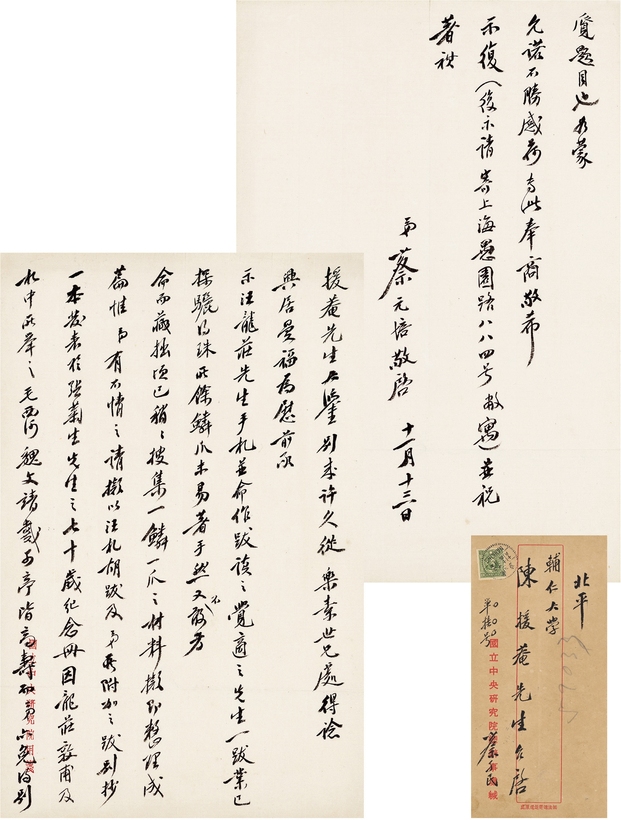 援菴先生大鉴别来许久從樂素世兄處得谂
興居曼福為慰前承
示汪龍莊先生手札並命作跋讀之覺適之先生一跋業已
探驪得珠所餘鱗爪未易著手然又不敢方
命而藏拙頃已稍稍搜集一鱗一爪之材料擬即整理成
篇惟弟有不情之請擬以汪札胡跋及弟所附加之跋別抄
一本發表於張菊生先生之七十歲紀念冊因龍莊敦甫及
札中所舉之毛西河魏文靖
覓題目也如蒙
允諾不勝感荷專此奉商敬希
示復（復示請寄上海愚園路八八四号敝寓）并祝
著祺
弟蔡元培敬啓
十一月十三日
北平
輔仁大学
陳援菴先生台启
單掛号
國立中央研究院